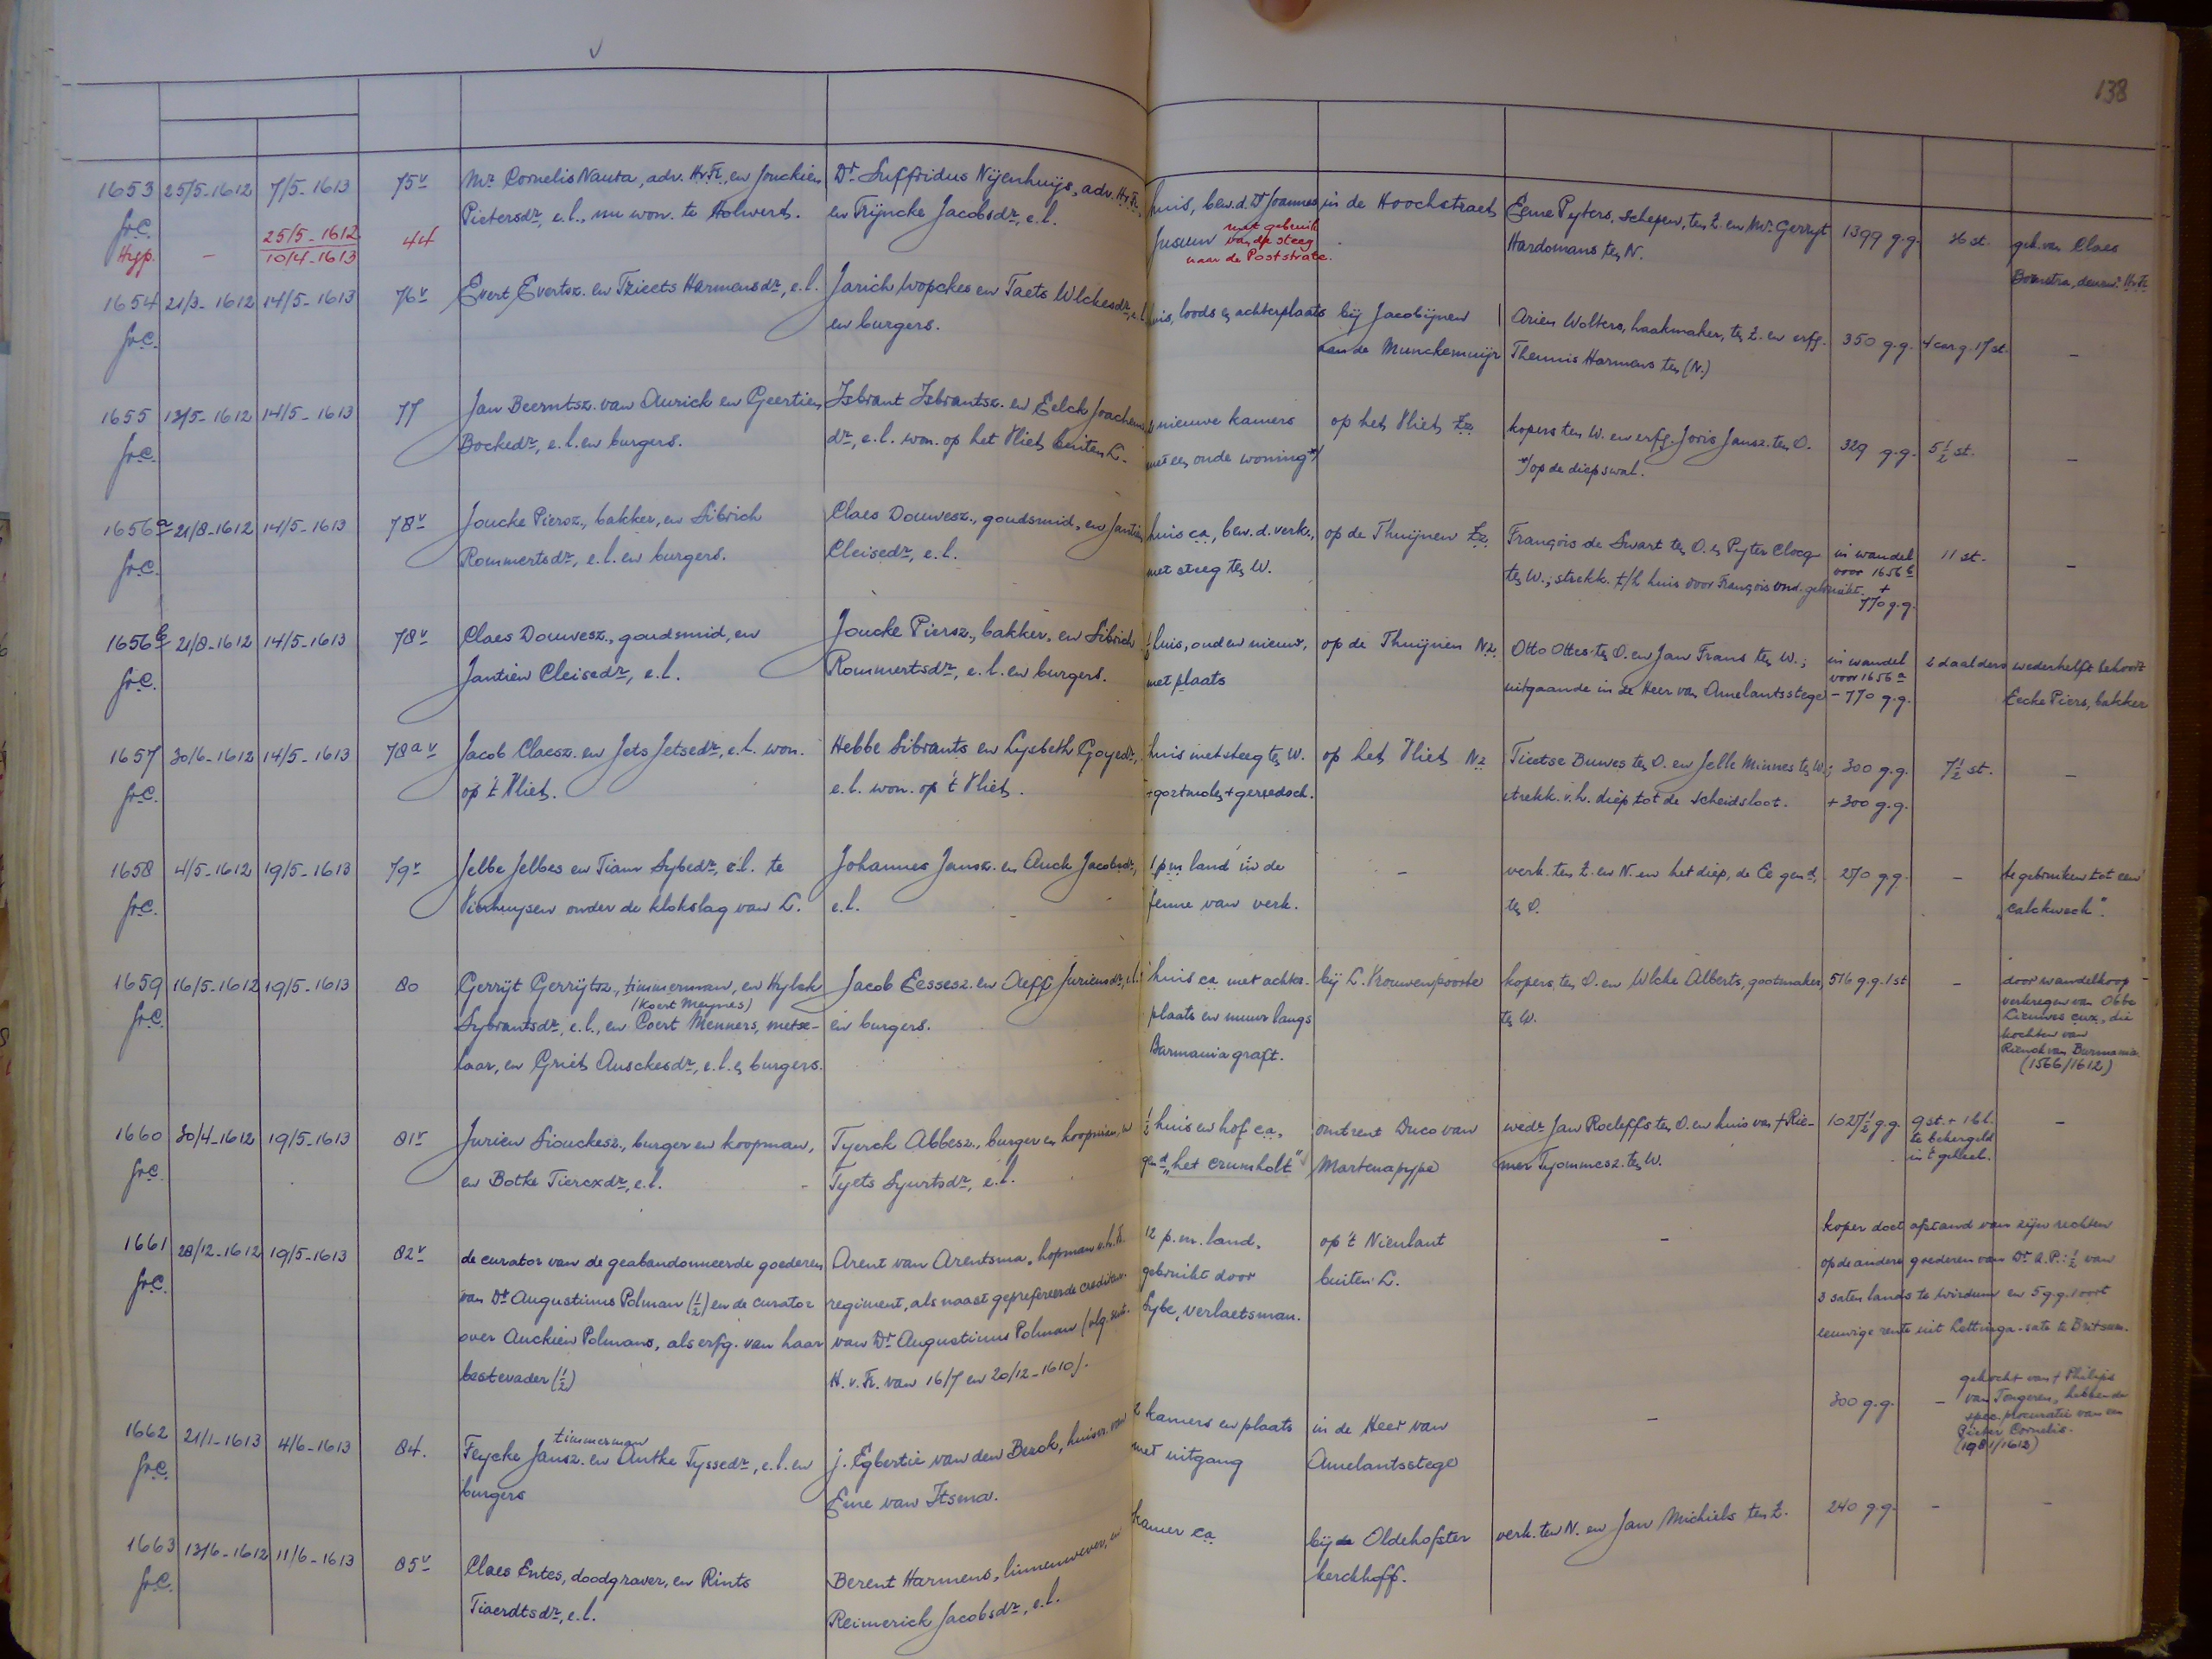 138
1653 25/5-1612 7/5-1613 75v Mr. Cornelis Nauta, adv. H.v.Fr., en Jouckien Dr. Suffridus Nijenhuijs, adv. H.v.Fr. huis, bew. d. Dr Joannes in de Hoochstraet Eeme Pyters, schepen, ten Z. en Mr. Gerryt 1399 g.g. 36 st. geh. van Claes
pr.C. Pietersdr., e.l., nu won. te Holwert. en Trijncke Jacobsdr., e.l. met gebruik van de steeg naar de Poststrate. Hardomans ten N. deurw. H.v.Fr.
Hyp. - 25/5-1612 10/4-1613 44
1654 21/3-1612 14/5-1613 76v Evert Evertsz. en Tzieets Harmensdr., e.l. Jarich Wopckes en Taets Wlckesdr., e.l. huis, loods en achterplaats bij Jacobijnen Arien Wolters, haakmaker, ten Z. en erfg. 350 g.g. 4 car.g. 17 st. -
pr.C. en burgers. aan de Munckemuijr Theunis Harmens ten (N.)
1655 13/5-1612 14/5-1613 77 Jan Beerntsz. van Aurick en Geertien Isbrant Isbrantsz. en Eelck Joachems nieuwe kamers op het Vliet Zz kopers ten W. en erfg. Joris Jansz. ten O. 329 g.g. 5½ st. -
pr.C. Bockedr., e.l. en burgers. dr., e.l. won. op het Vliet buiten L. met een oude woning */ */ op de diepswal.
1656a 21/8-1612 14/5-1613 78v Joucke Piersz., bakker, en Sibrich Claes Douwesz., goudsmid, en Jantien huis ca, bew. d. verk., op de Thuijnen Zz François de Swart ten O. en Pyter Clocq in wandel 11 st. -
pr.C. Rommertsdr., e.l. en burgers. Cleisedr., e.l. met steeg ten W. ten W.; strekk. t/h huis door François vnd. gebruikt. voor 1656b + 770 g.g.
1656b 21/8-1612 14/5-1613 78v Claes Douwesz., goudsmid, en Joucke Piersz., bakker, en Sibrich ½ huis, oud en nieuw, op de Thuijnen Nz. Otto Ottes ten O. en Jan Frans ten W.; in wandel daalders wederhelft behoort
pr.C. Jantien Cleisedr., e.l. Rommertsdr., e.l. en burgers. met plaats uitgaande in de Heer van Amelantsstege voor 1656a - 770 g.g. Eecke Piers, bakker
1657 30/6-1612 14/5-1613 78a v Jacob Claesz. en Jets Jetsedr., e.l. won. Hebbe Sibrants en Lysbeth Goyedr., huis met steeg ten W. op het Vliet Nz Tietse Buwes ten O. en Jelle Minnes ten W.; 300 g.g. 7½ st. -
pr.C. op 't Vliet. e.l. won. op 't Vliet. + gortmolen + gereedsch. strekk. v.h. diep tot de scheidsloot. + 300 g.g.
1658 4/5-1612 19/5-1613 79v Jelbe Jelbes en Tiam Sybedr., e.l. te Johannes Jansz. en Auck Jacobsdr., 1 p.m. land in de - verk. ten Z. en N. en het diep, de Ee gen.d, 270 g.g. - te gebruiken tot een
pr.C. Vierhuysen onder de klokslag van L. e.l. fenne van verk. ten O. "calckweck".
1659 16/5-1612 19/5-1613 80 Gerrijt Gerrijtsz., timmerman, en Hylck Jacob Eessesz. en Aeff Juriensdr., e.l. huis ca met achter- bij L. Vrouwenpoorte kopers, ten O. en Wlcke Alberts, gootmaker, 516 g.g. 1 st - door wandelkoop
pr.C. (Koert Meynes) Sybrantsdr., e.l., en Coert Menners, metse- en burgers. plaats en muur langs ten W. verkregen van Obbe Lieuwes c.ux., die kochten van
laar, en Griet Ausckesdr., e.l. en burgers. Burmania graft. Rienck van Burmania. (1566/1612)
1660 30/4-1612 19/5-1613 81v Jurien Siouckesz., burger en koopman, Tyerck Abbesz., burger en koopman, en ½ huis en hof ca, omtrent Duco van wedr. Jan Roeleffs ten O. en huis van † Rie- 1027½ g.g. 9 st. + 16 l. -
pr.C. en Botke Tiercxdr., e.l. Tyets Syurtsdr., e.l. gen.d "het crumholt" Martenapype mer Tyommesz. ten W. te bekergeld in 't geheel.
1661 28/12-1612 19/5-1613 82v de curator van de geabandonneerde goederen Arent van Arentsma, hopman 12 p.m. land, op 't Nieulant - koper doet afstand van zijn rechten
pr.C. van Dr. Augustinus Polman (½) en de curator regiment, als naast gepreferreerde crediteur gebruikt door buiten L. op de andere goederen van Dr. A.P.: ½ van
over Auckien Polmans, als erfg. van haar van Dr. Augustinus Polman (vlg. sent. Sybe, verlaetsman. 3 saten lands te Wirdum en 5 g.g. 1 oort
bestevader (½) H.v.Fr. van 16/7 en 20/12-1610). eeuwige rente uit Lettinga-sate te Britsum.
1662 21/1-1613 4/6-1613 84. Feycke Jansz. timmerman en Antke Tyssedr., e.l. en j. Egbertie van den Berck, huisvr. van 2 kamers en plaats in de Heer van - 300 g.g. - gekocht van † Philips van Tongeren, hebbende spec. procuratie van een
pr.C. burgers Eme van Itsma. met uitgang Amelantsstege Pieter Cornelis. (1981/1612)
1663 13/6-1612 11/6-1613 85v Claes Entes, doodgraver, en Rints Berent Harmens, linnenwever, en kamer ca bij de Oldehofster verk. ten N. en Jan Michiels ten Z. 240 g.g. - -
pr.C. Tiaerdtsdr., e.l. Reimerick Jacobsdr., e.l. kerckhoff.